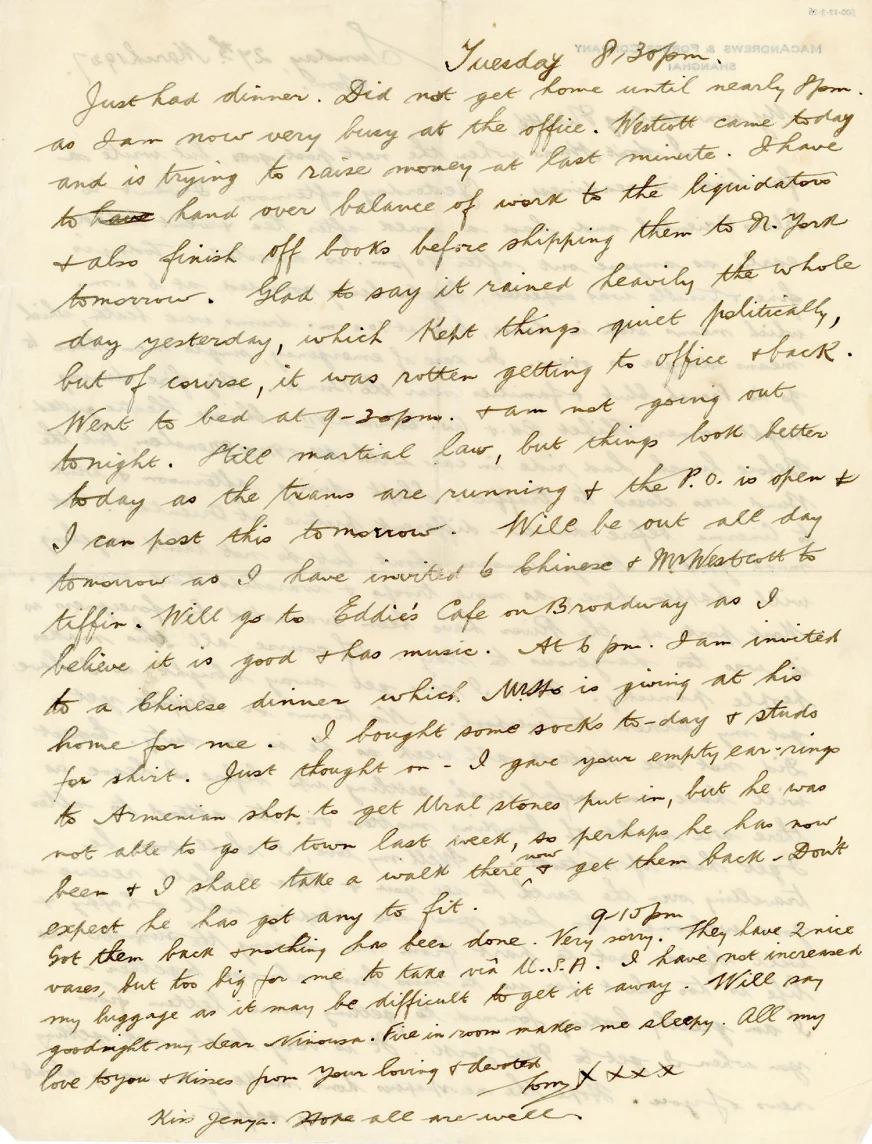 Tuesday 8.30pm.
Just had dinner. Did not get home until nearly 8pm.
as I am now very busy at the office. Westcott came today
and is trying to raise money at last minute. I have
to have hand over balance of work to the liquidators
& also finish off books before shipping them to N. York
tomorrow. Glad to say it rained heavily the whole
day yesterday, which kept things quiet politically,
but of course, it was rotten getting to office & back.
Went to bed at 9-30pm. & am not going out
tonight. Still martial law, but things look better
today as the trams are running & the P.O. is open &
I can post this tomorrow. Will be out all day
tomorrow as I have invited 6 Chinese & Mr Westcott to
tiffin. Will go to Eddie's Cafe on Broadway as I
believe it is good & has music. At 6 pm. I am invited
to a Chinese dinner which Mr Ho is giving at his
home for me. I bought some socks to-day & studs
for shirt. Just thought on - I gave your empty ear-rings
to Armenian shop to get Ural stones put in, but he was
not able to go to town last week, so perhaps he has now
been & I shall take a walk there now & get them back - Don't
expect he has got any to fit.
9-10pm
Got them back & nothing has been done. Very sorry. They have 2 nice
vases, but too big for me to take via U.S.A. I have not increased
my luggage as it may be difficult to get it away. Will say
goodnight my dear Ninousa. Fire in room makes me sleepy. All my
love to you & kisses from your loving & devoted
Tomy X X X X
Kiss Jenya. Hope all are well.
MACANDREWS & FORBES COMPANY
SHANGHAI
Sunday 27th March 1927.